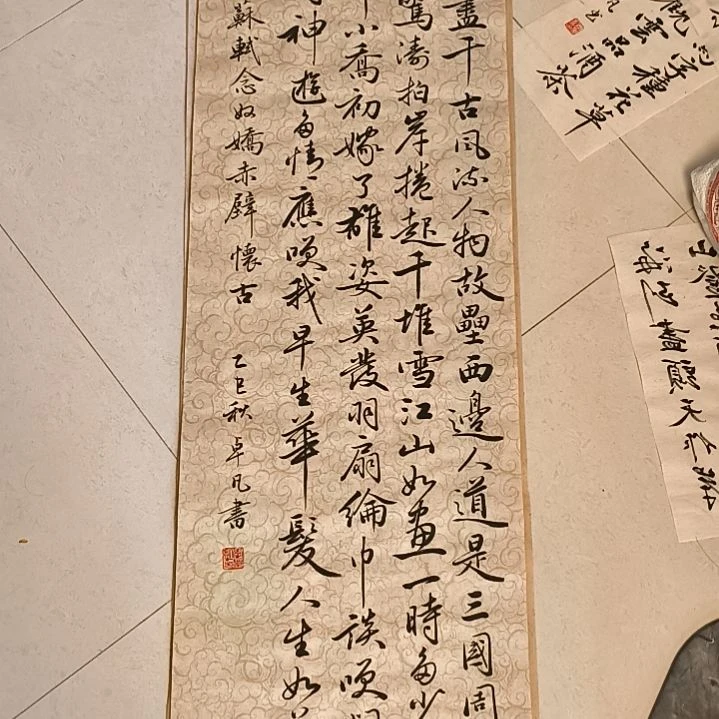 種花草
雲品酒茶
盡頭天作
盡千古風流人物故壘西邊人道是三國周
驚濤拍岸捲起千堆雪江山如畫一時多少
小喬初嫁了雄姿英發羽扇綸巾談笑
神遊多情應笑我早生華髮人生如
蘇軾念奴嬌赤壁懷古 乙巳秋卓凡書